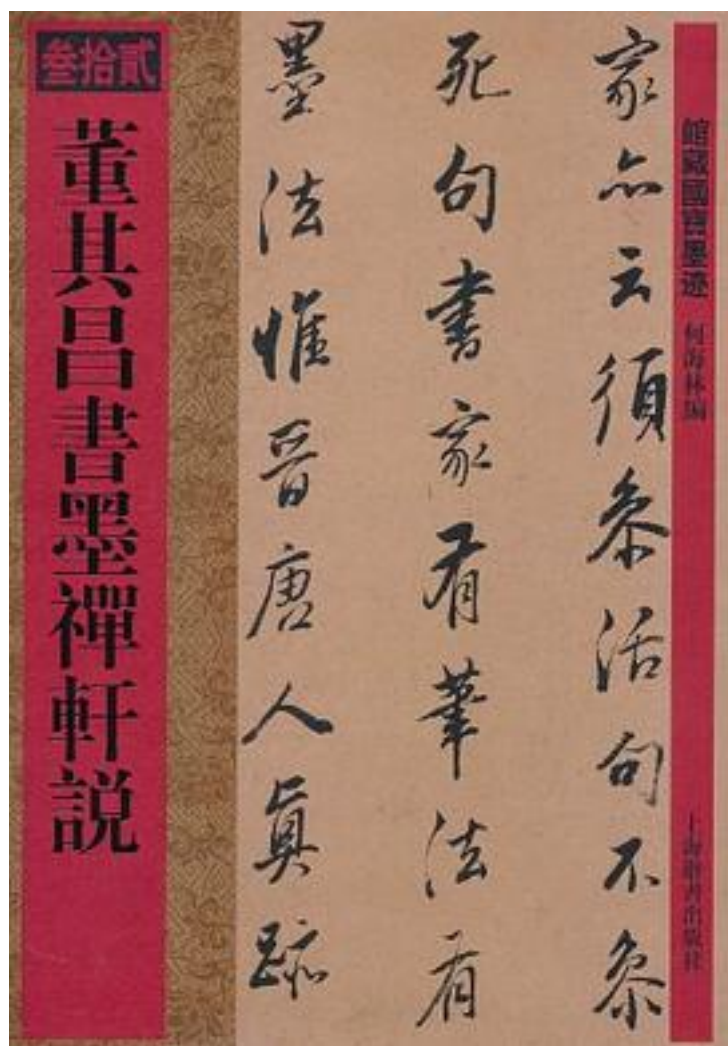 館藏國寶墨迹 何海林編 上海辭書出版社
家亦云須參活句不參
死句書家有筆法有
墨法惟晉唐人眞跡
叁拾貳
董其昌書墨禪軒説